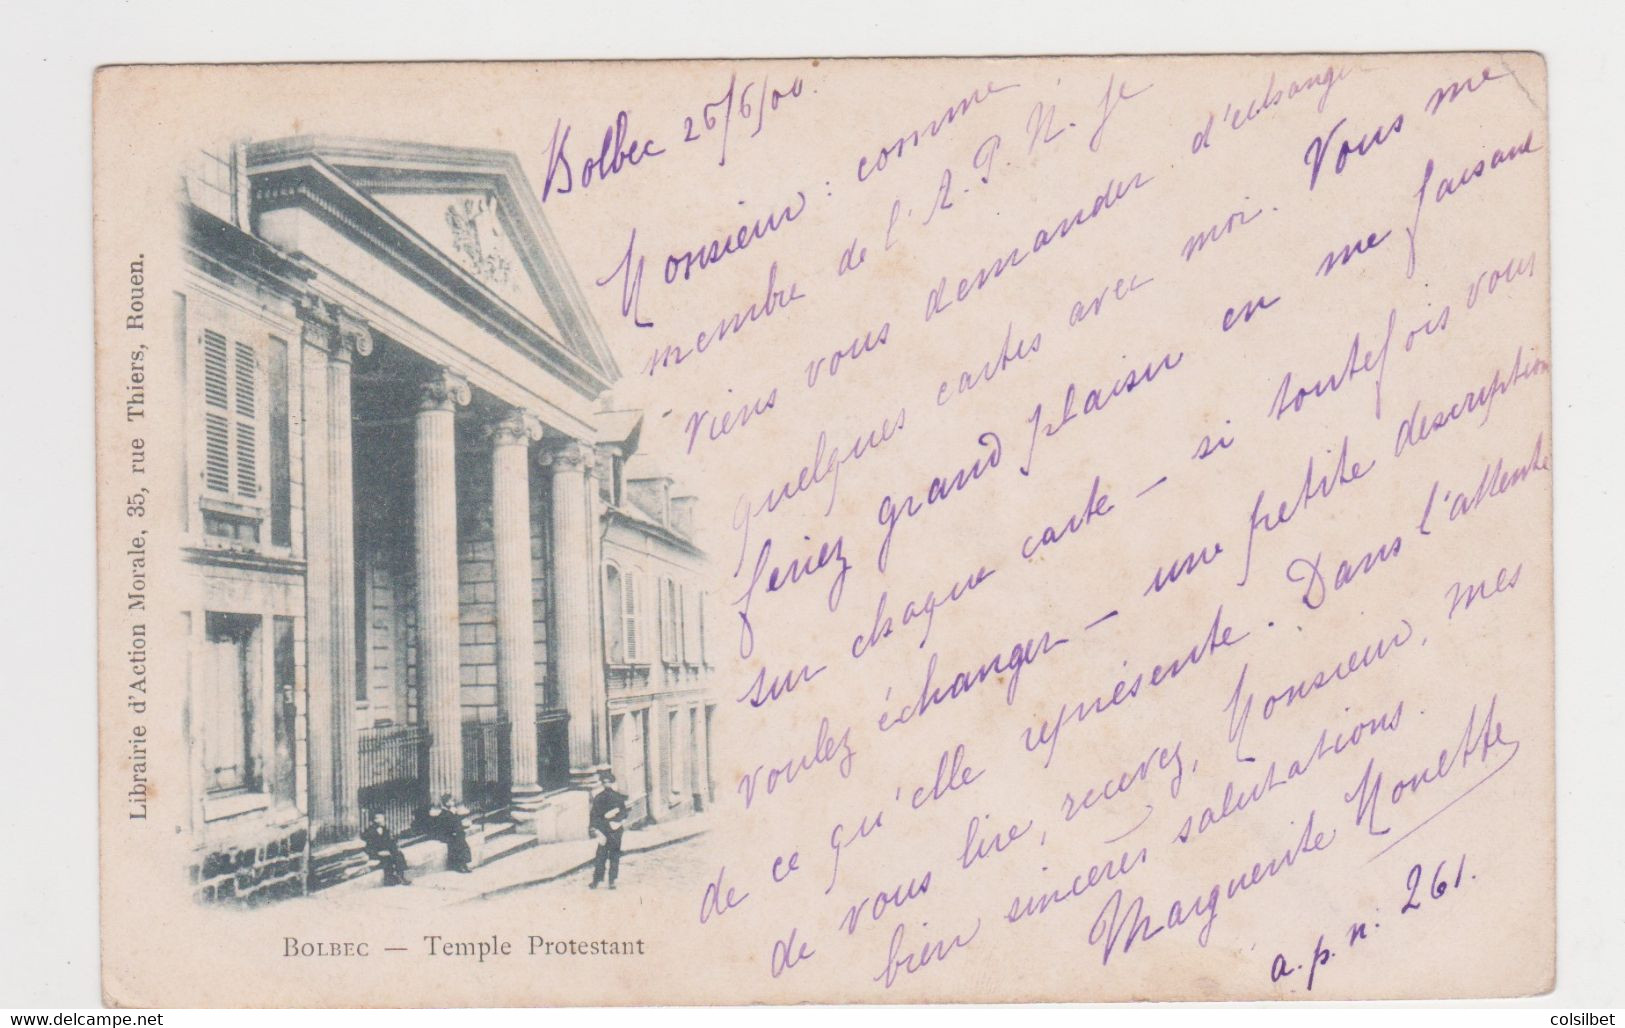 Librairie d'Action Morale, 35, rue Thiers, Rouen.
Bolbec 26/6/00.
Monsieur : comme
membre de l'A. P. N. je
viens vous demander d'échanger
quelques cartes avec moi. Vous me
feriez grand plaisir en me faisant
sur chaque carte — si toutefois vous
voulez échanger — une petite description
de ce qu'elle représente. Dans l'attente
de vous lire, recevez, Monsieur, mes
bien sincères salutations.
Marguerite Monette
a. p. n. 261.
BOLBEC — Temple Protestant
www.delcampe.net
colsilbet